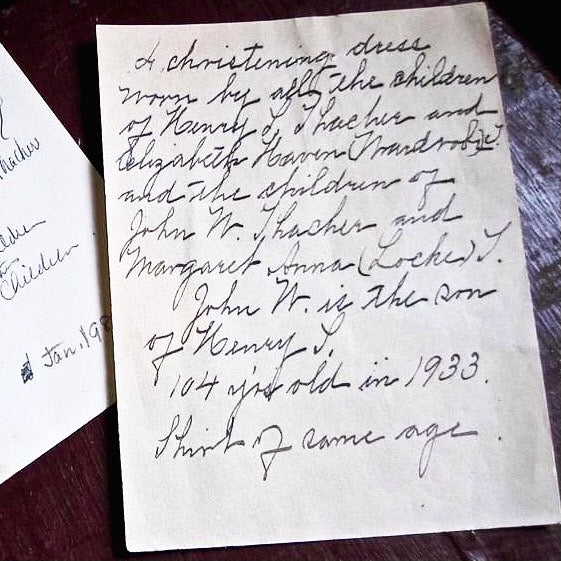 Thacher
Children
Jan. 198
A christening dress
worn by all the children
of Henry S. Thacher and
Elizabeth Haven Wardrobe T.
and the children of
John W. Thacher and
Margaret Anna (Locke) T.
John W. is the son
of Henry S.
104 yrs old in 1933.
Shirt of same age.